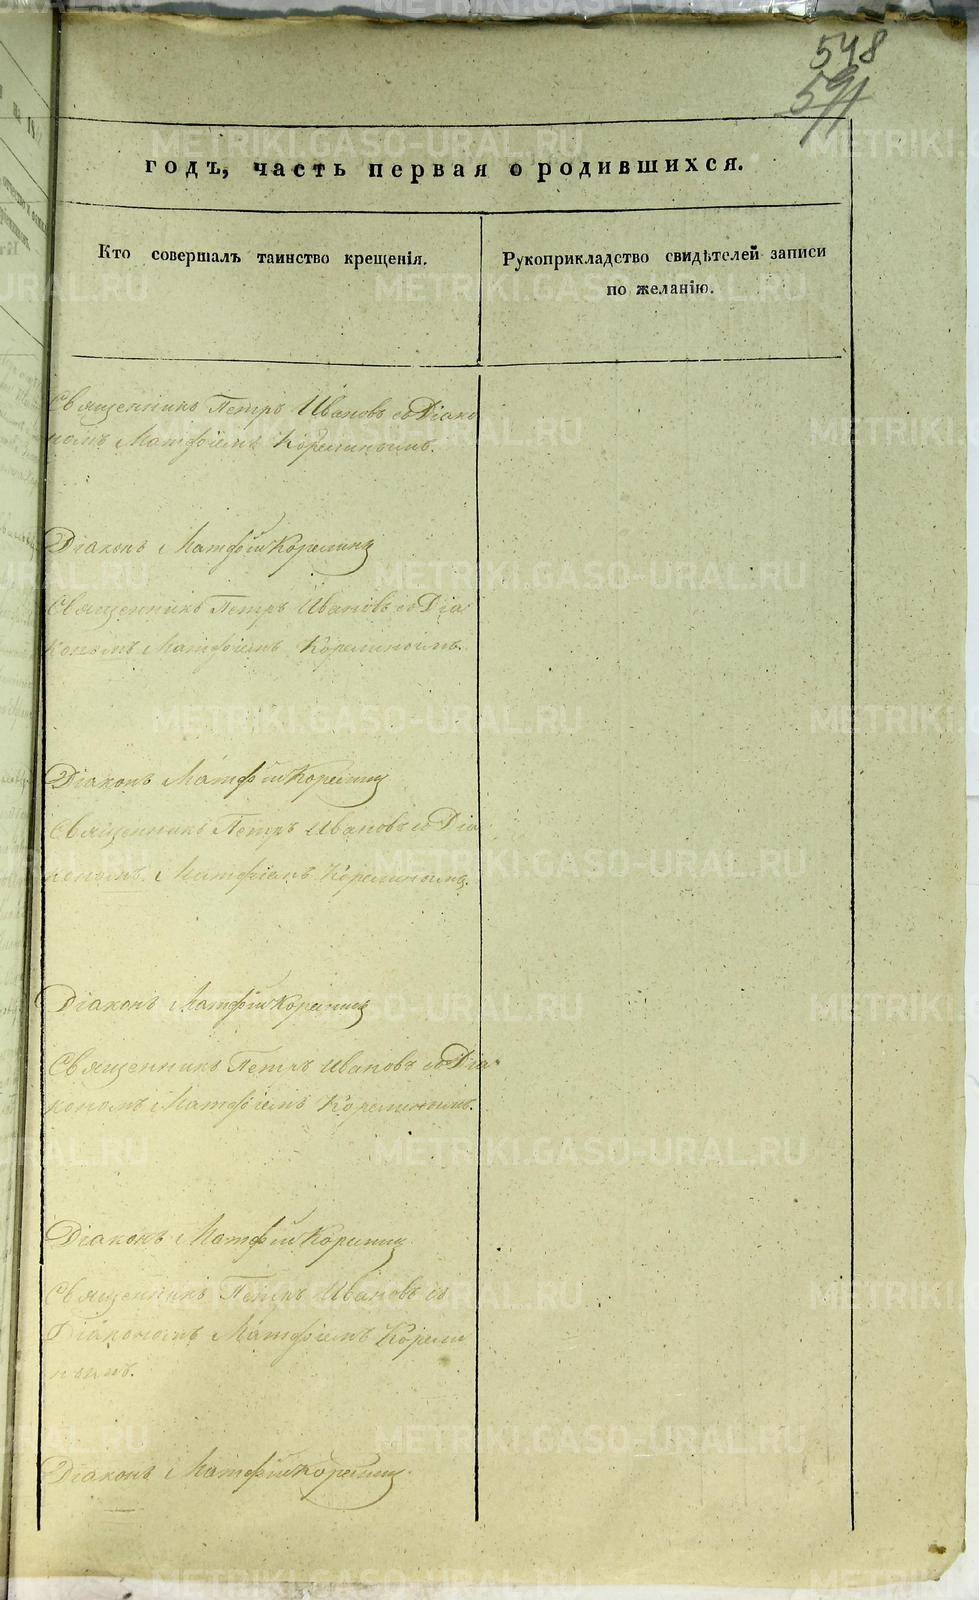 548
591
годъ, часть первая о родившихся.
Кто совершалъ таинство крещенія.
Рукоприкладство свидѣтелей записи
по желанію.
Священникъ Петръ Ивановъ съ Діако
номъ Матфіемъ Корелинымъ.
Діаконъ Матфій Корелинъ
Священникъ Петръ Ивановъ съ Діа
кономъ Матфіемъ Корелинымъ.
Діаконъ Матфій Корелинъ
Священникъ Петръ Ивановъ съ Діа
кономъ Матфіемъ Корелинымъ.
Діаконъ Матфій Корелинъ
Священникъ Петръ Ивановъ съ Діа
кономъ Матфіемъ Корелинымъ.
Діаконъ Матфій Корелинъ
Священникъ Петръ Ивановъ съ
Діакономъ Матфіемъ Корели
нымъ.
Діаконъ Матфій Корелинъ.
METRIKI.GASO-URAL.RU